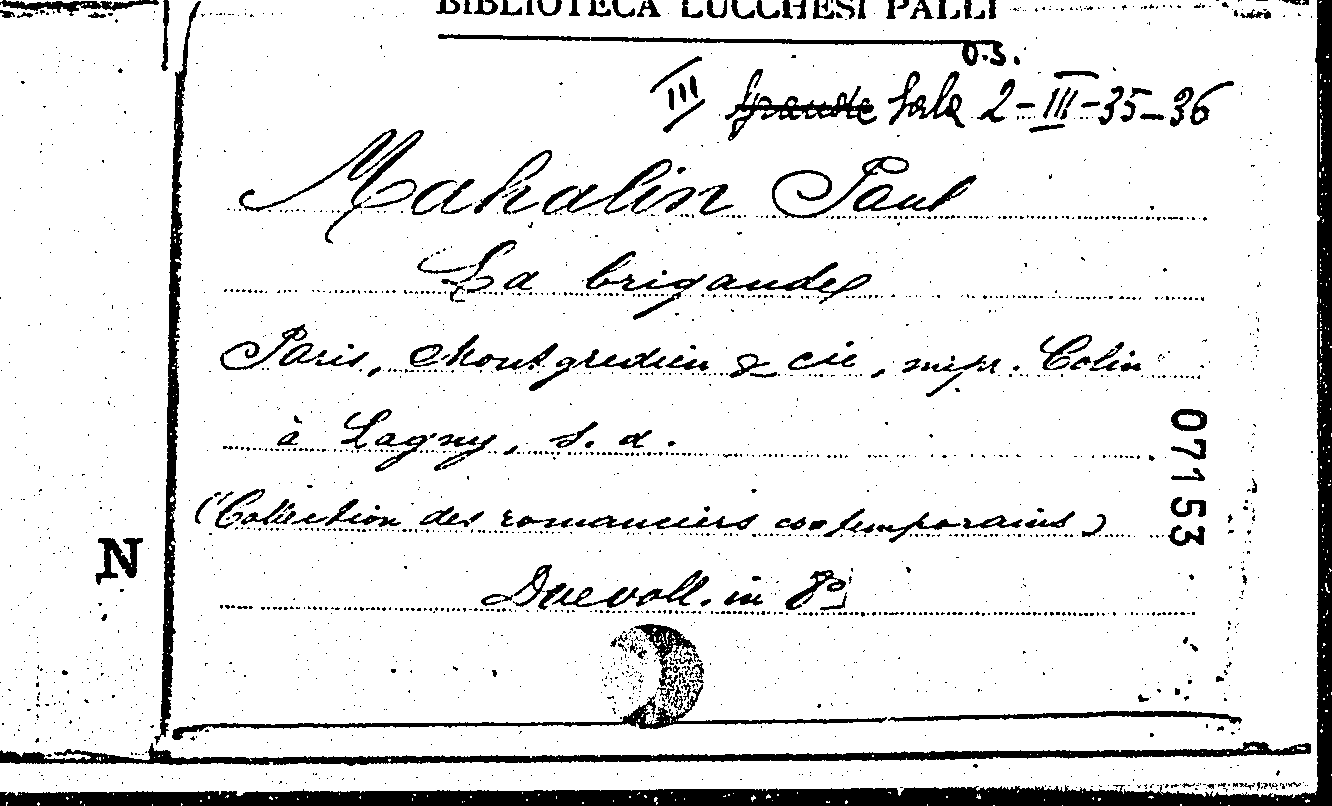 BIBLIOTECA LUCCHESI PALLI
O.S.
III Grande Sala 2-III-35-36
Mahalin Paul
La brigande
Paris, Montgredien & cie, impr. Colin
à Lagny, s. d.
(Collection des romanciers contemporains)
Due voll. in 8°
07153
N